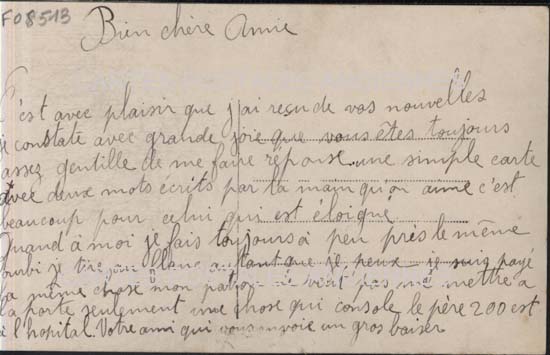 F08513
Bien chère Amie
C'est avec plaisir que j'ai reçu de vos nouvelles
je constate avec grande joie que vous êtes toujours
assez gentille de me faire réponse. une simple carte
avec deux mots écrits par la main qu'on aime c'est
beaucoup pour celui qui est éloigné
Quand à moi je fais toujours à peu près le même
fourbi je tire au flanc autant que je peux je suis payé
la même chose mon patron ne veut pas me mettre à
la porte seulement une chose qui console le père 200 est
à l'hopital. Votre ami qui vous envoie un gros baiser